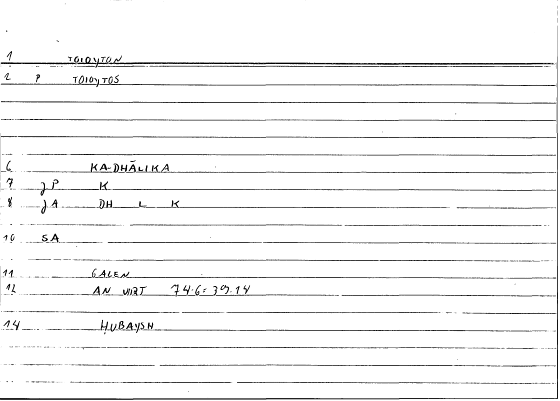 1 TOIOYTON
2 P TOIOYTOS
6 KA-DHĀLIKA
7 JP K
8 JA DH L K
10 SA
11 GALEN
12 AN VIRT 74.6 = 39.14
14 ḤUBAYSH